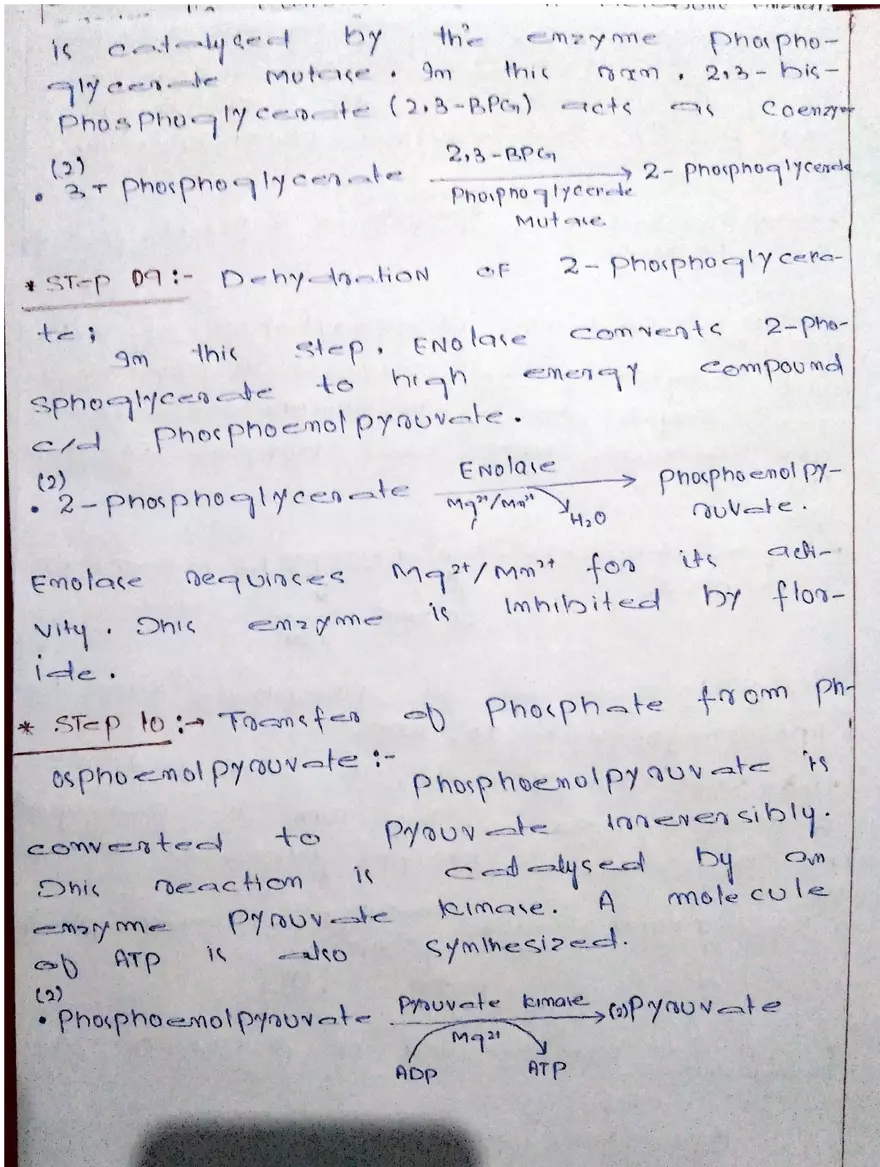 is catalysed by the enzyme phospho-
glycerate mutase. In this rxn, 2,3-bis-
phosphoglycerate (2,3-BPG) acts as coenzym
(2)
• 3-phosphoglycerate 2,3-BPG → 2-phosphoglycerate
Phosphoglycerate
Mutase
* STEP 09:- Dehydration OF 2-phosphoglycera-
te;
In this step, ENolase converts 2-pho-
sphoglycerate to high energy compound
c/d phosphoenolpyruvate.
(2)
• 2-phosphoglycerate ENolase → phosphoenolpy-
Mg²⁺/Mn²⁺ H₂O ruvate.
Enolase requires Mg²⁺/Mn²⁺ for its acti-
vity. This enzyme is inhibited by flor-
ide.
* STEP 10:→ Transfer of phosphate from ph-
osphoenolpyruvate:-
phosphoenolpyruvate is
converted to pyruvate irreversibly.
This reaction is catalysed by an
enzyme pyruvate kinase. A molecule
of ATP is also synthesized.
(2)
• phosphoenolpyruvate Pyruvate kinase → (2) Pyruvate
Mg²⁺
ADP ATP